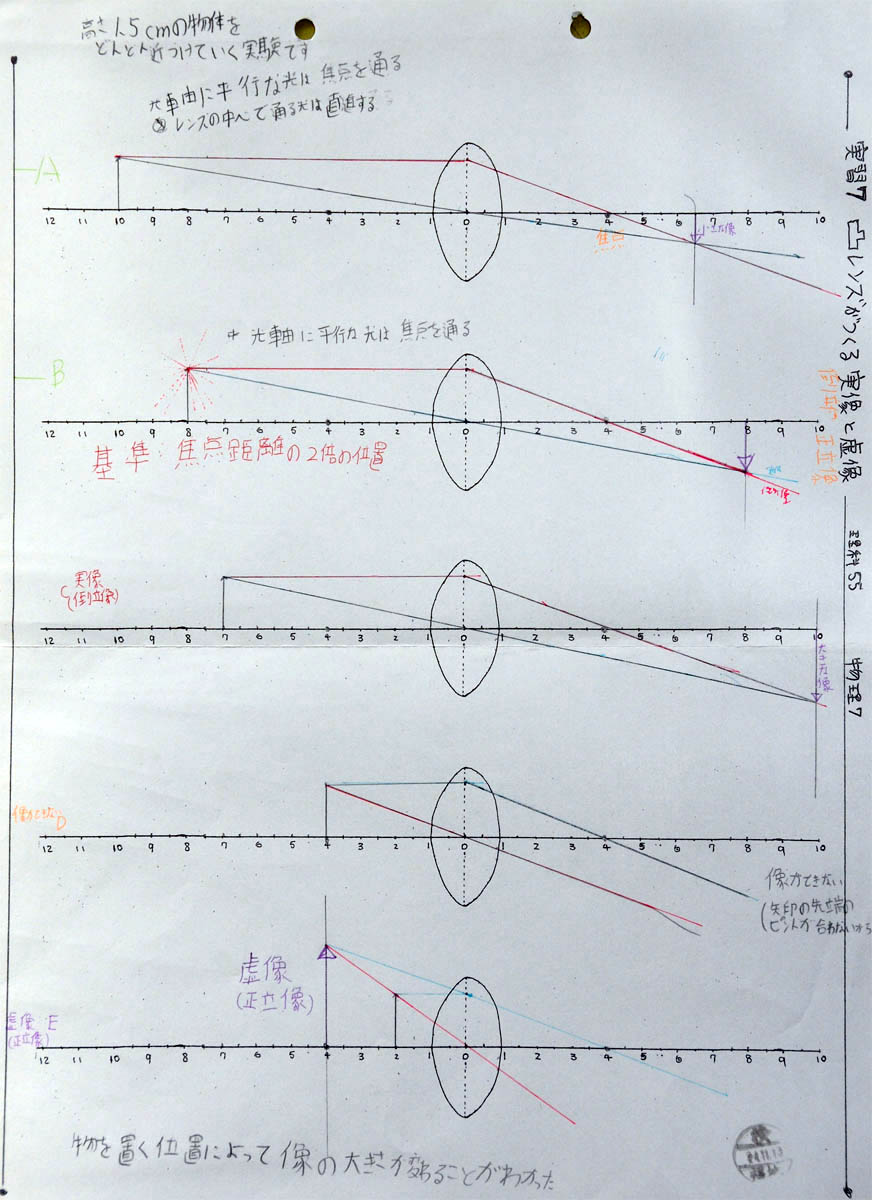 高さ1.5cmの物体を
どんどん近づけていく実験です
光車由に平行な光は焦点を通る
レンズの中心で通る光は直進する
実習7 凸レンズがつくる実像と虚像
倒立像 正立像
理科55
物理7
A
12 11 10 9 8 7 6 5 4 3 2 1 0 1 2 3 4 5 6 7 8 9 10
焦点
小さな像
光車由に平行な光は焦点を通る
B
12 11 10 9 8 7 6 5 4 3 2 1 0 1 2 3 4 5 6 7 8 9 10
基準 焦点距離の2倍の位置
C 実像
(倒立像)
12 11 10 9 8 7 6 5 4 3 2 1 0 1 2 3 4 5 6 7 8 9 10
大きな像
像ができない D
12 11 10 9 8 7 6 5 4 3 2 1 0 1 2 3 4 5 6 7 8 9 10
像ができない
(矢印の先端の
ピントが合わないから
虚像
(正立像)
虚像 E
(正立像)
12 11 10 9 8 7 6 5 4 3 2 1 0 1 2 3 4 5 6 7 8 9 10
物を置く位置によって像の大きさが変わることがわかった